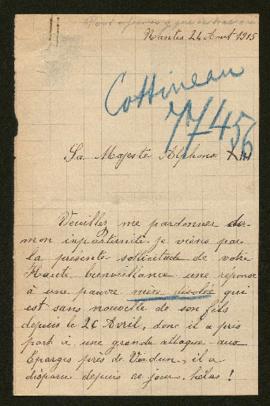 Nantes 24 Aout 1915
Cottineau
77456
Sa Majesté Alphonse XIII
Veuillez me pardonner de
mon importunité je viens par
la présente sollicitude de votre
Haute bienveillance une réponse
à une pauvre mère désolée qui
est sans nouvelle de son fils
depuis le 26 Avril, donc il a pris
part à une grande attaque aux
Eparges près de Verdun, il a
disparu depuis ce jour, hélas !